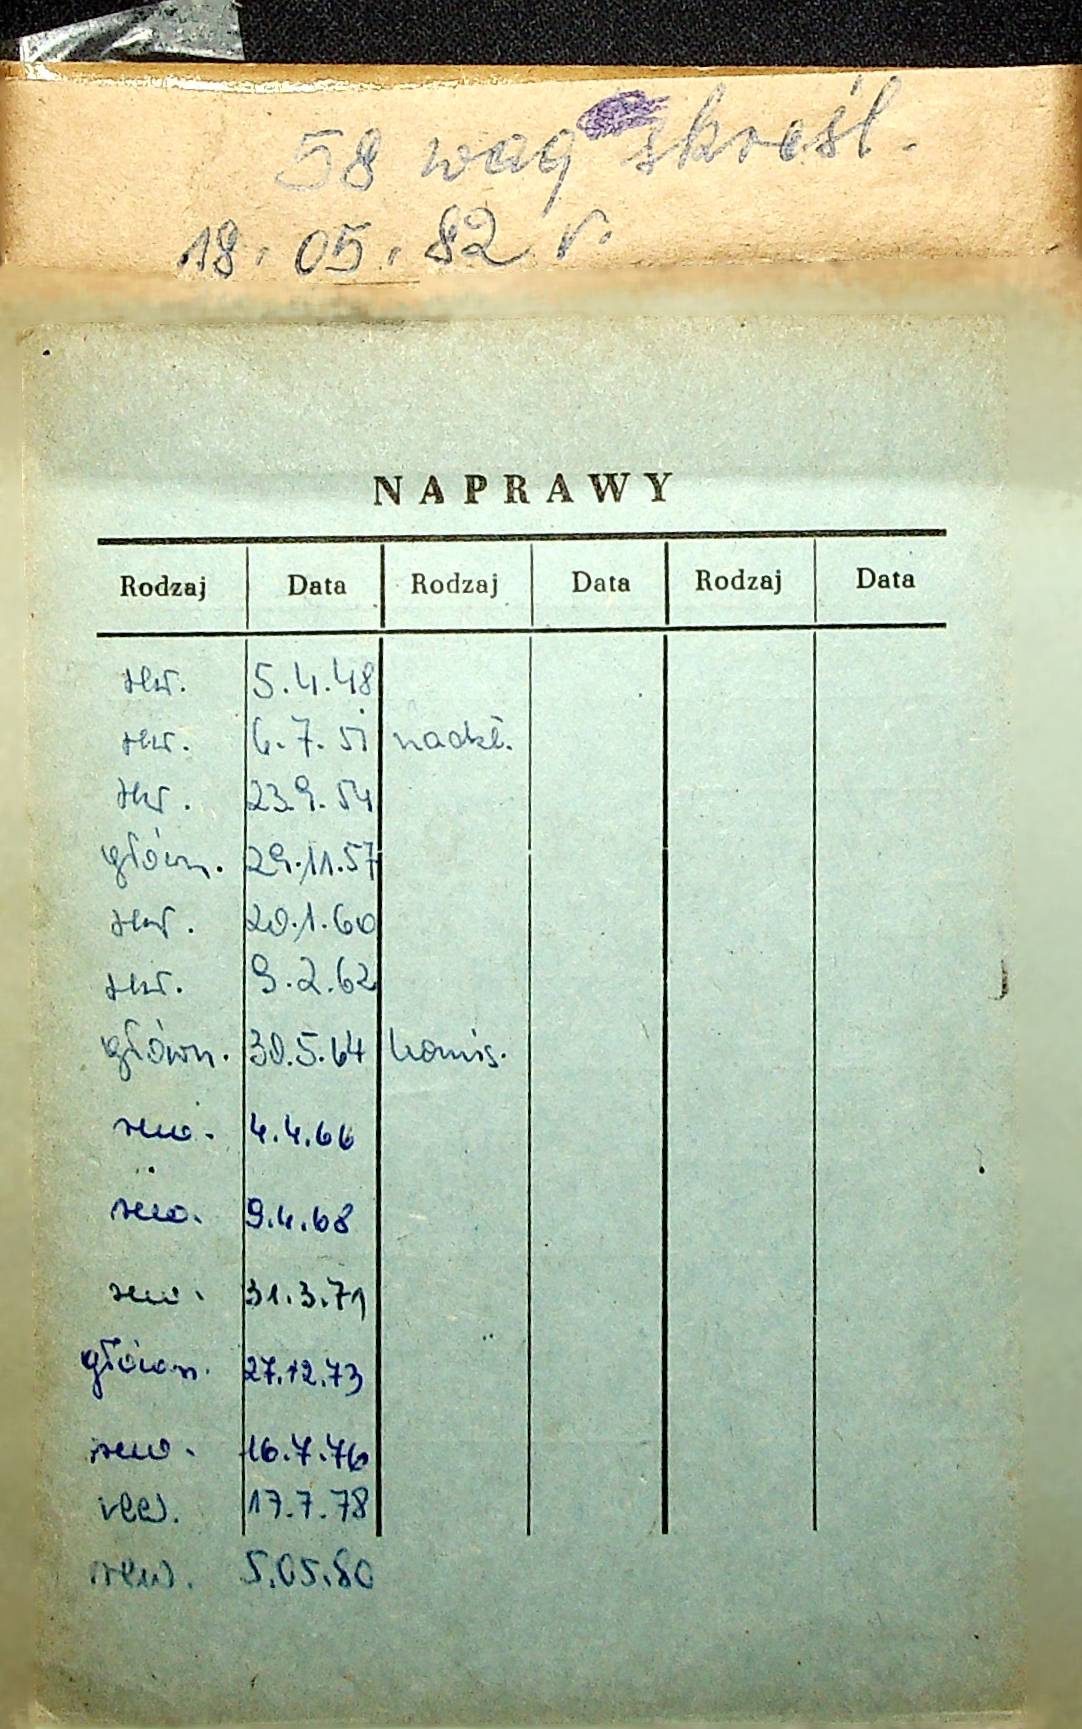 58 wag skreśl.
18.05.82 r.
NAPRAWY
Rodzaj Data Rodzaj Data Rodzaj Data
rew. 5.4.48
rew. 6.7.51 nadzw.
rew. 23.9.54
główn. 29.11.57
rew. 20.1.60
rew. 9.2.62
główn. 30.5.64 komis.
rew. 4.4.66
rew. 9.4.68
rew. 31.3.71
główn. 27.12.73
rew. 16.7.76
rew. 17.7.78
rew. 5.05.80